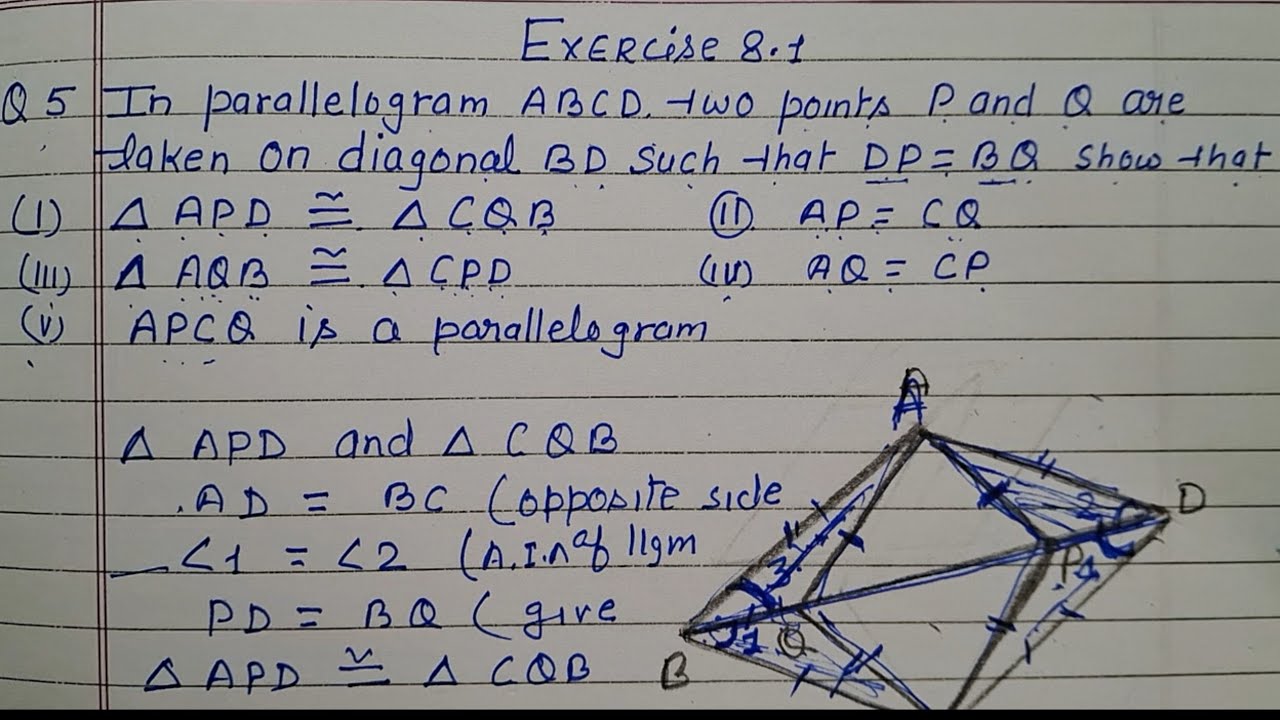 Exercise 8.1
Q 5 In parallelogram ABCD. two points P and Q are
taken on diagonal BD such that DP = BQ show that
(I) Δ APD ≅ Δ CQB (II) AP = CQ
(III) Δ AQB ≅ Δ CPD (IV) AQ = CP
(V) APCQ is a parallelogram
Δ APD and Δ CQB
AD = BC (opposite side
<1 = <2 (A.I.n of llgm
PD = BQ ( give
Δ APD ≅ Δ CQB
A
D
2
P
4
3
1
Q
B